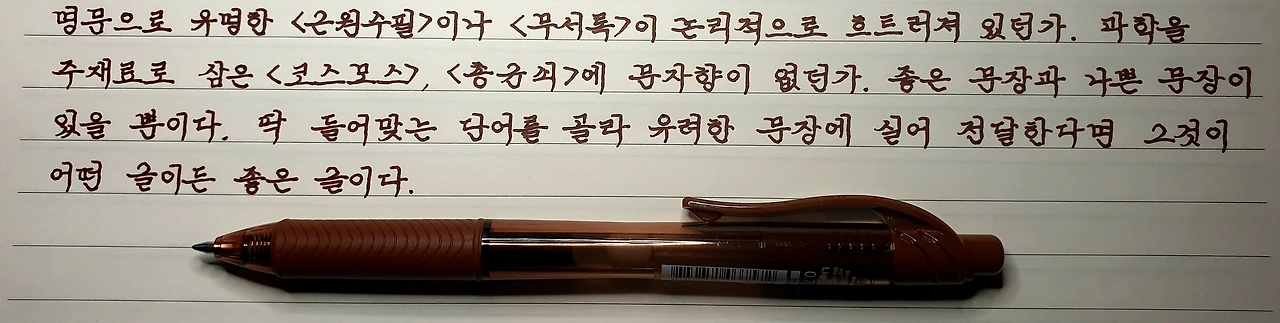 명문으로 유명한 <근원수필>이나 <무서록>이 논리적으로 흐트러져 있던가. 과학을
주재료로 삼은 <코스모스>, <총균쇠>에 문자향이 없던가. 좋은 문장과 나쁜 문장이
있을 뿐이다. 딱 들어맞는 단어를 골라 유려한 문장에 실어 전달한다면 그것이
어떤 글이든 좋은 글이다.